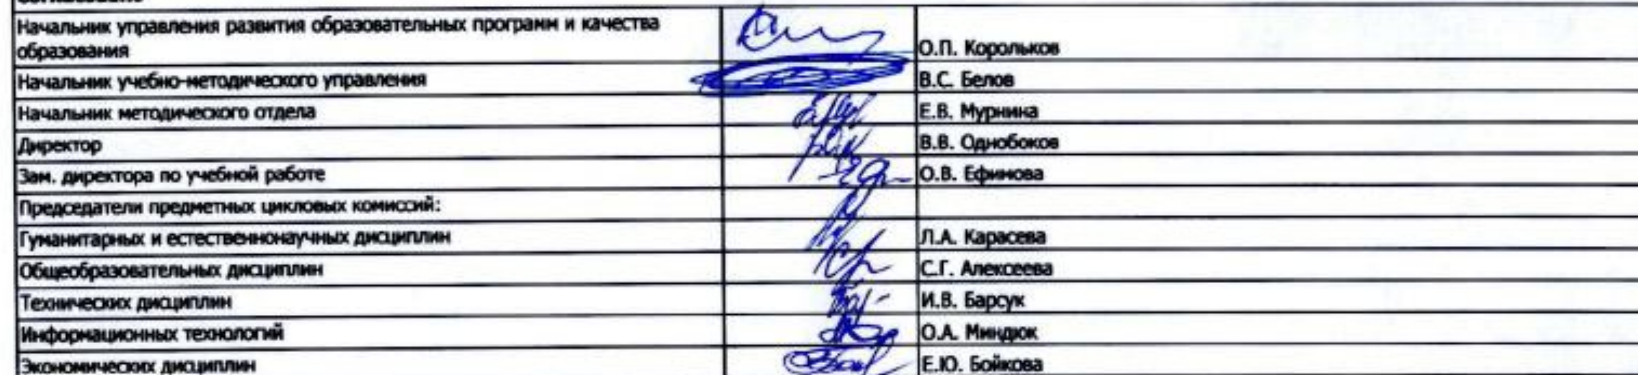 Начальник управления развития образовательных программ и качества
образования
О.П. Корольков
Начальник учебно-методического управления В.С. Белов
Начальник методического отдела Е.В. Мурнина
Директор В.В. Однобоков
Зам. директора по учебной работе О.В. Ефимова
Председатели предметных цикловых комиссий:
Гуманитарных и естественнонаучных дисциплин Л.А. Карасева
Общеобразовательных дисциплин С.Г. Алексеева
Технических дисциплин И.В. Барсук
Информационных технологий О.А. Миндюк
Экономических дисциплин Е.Ю. Бойкова